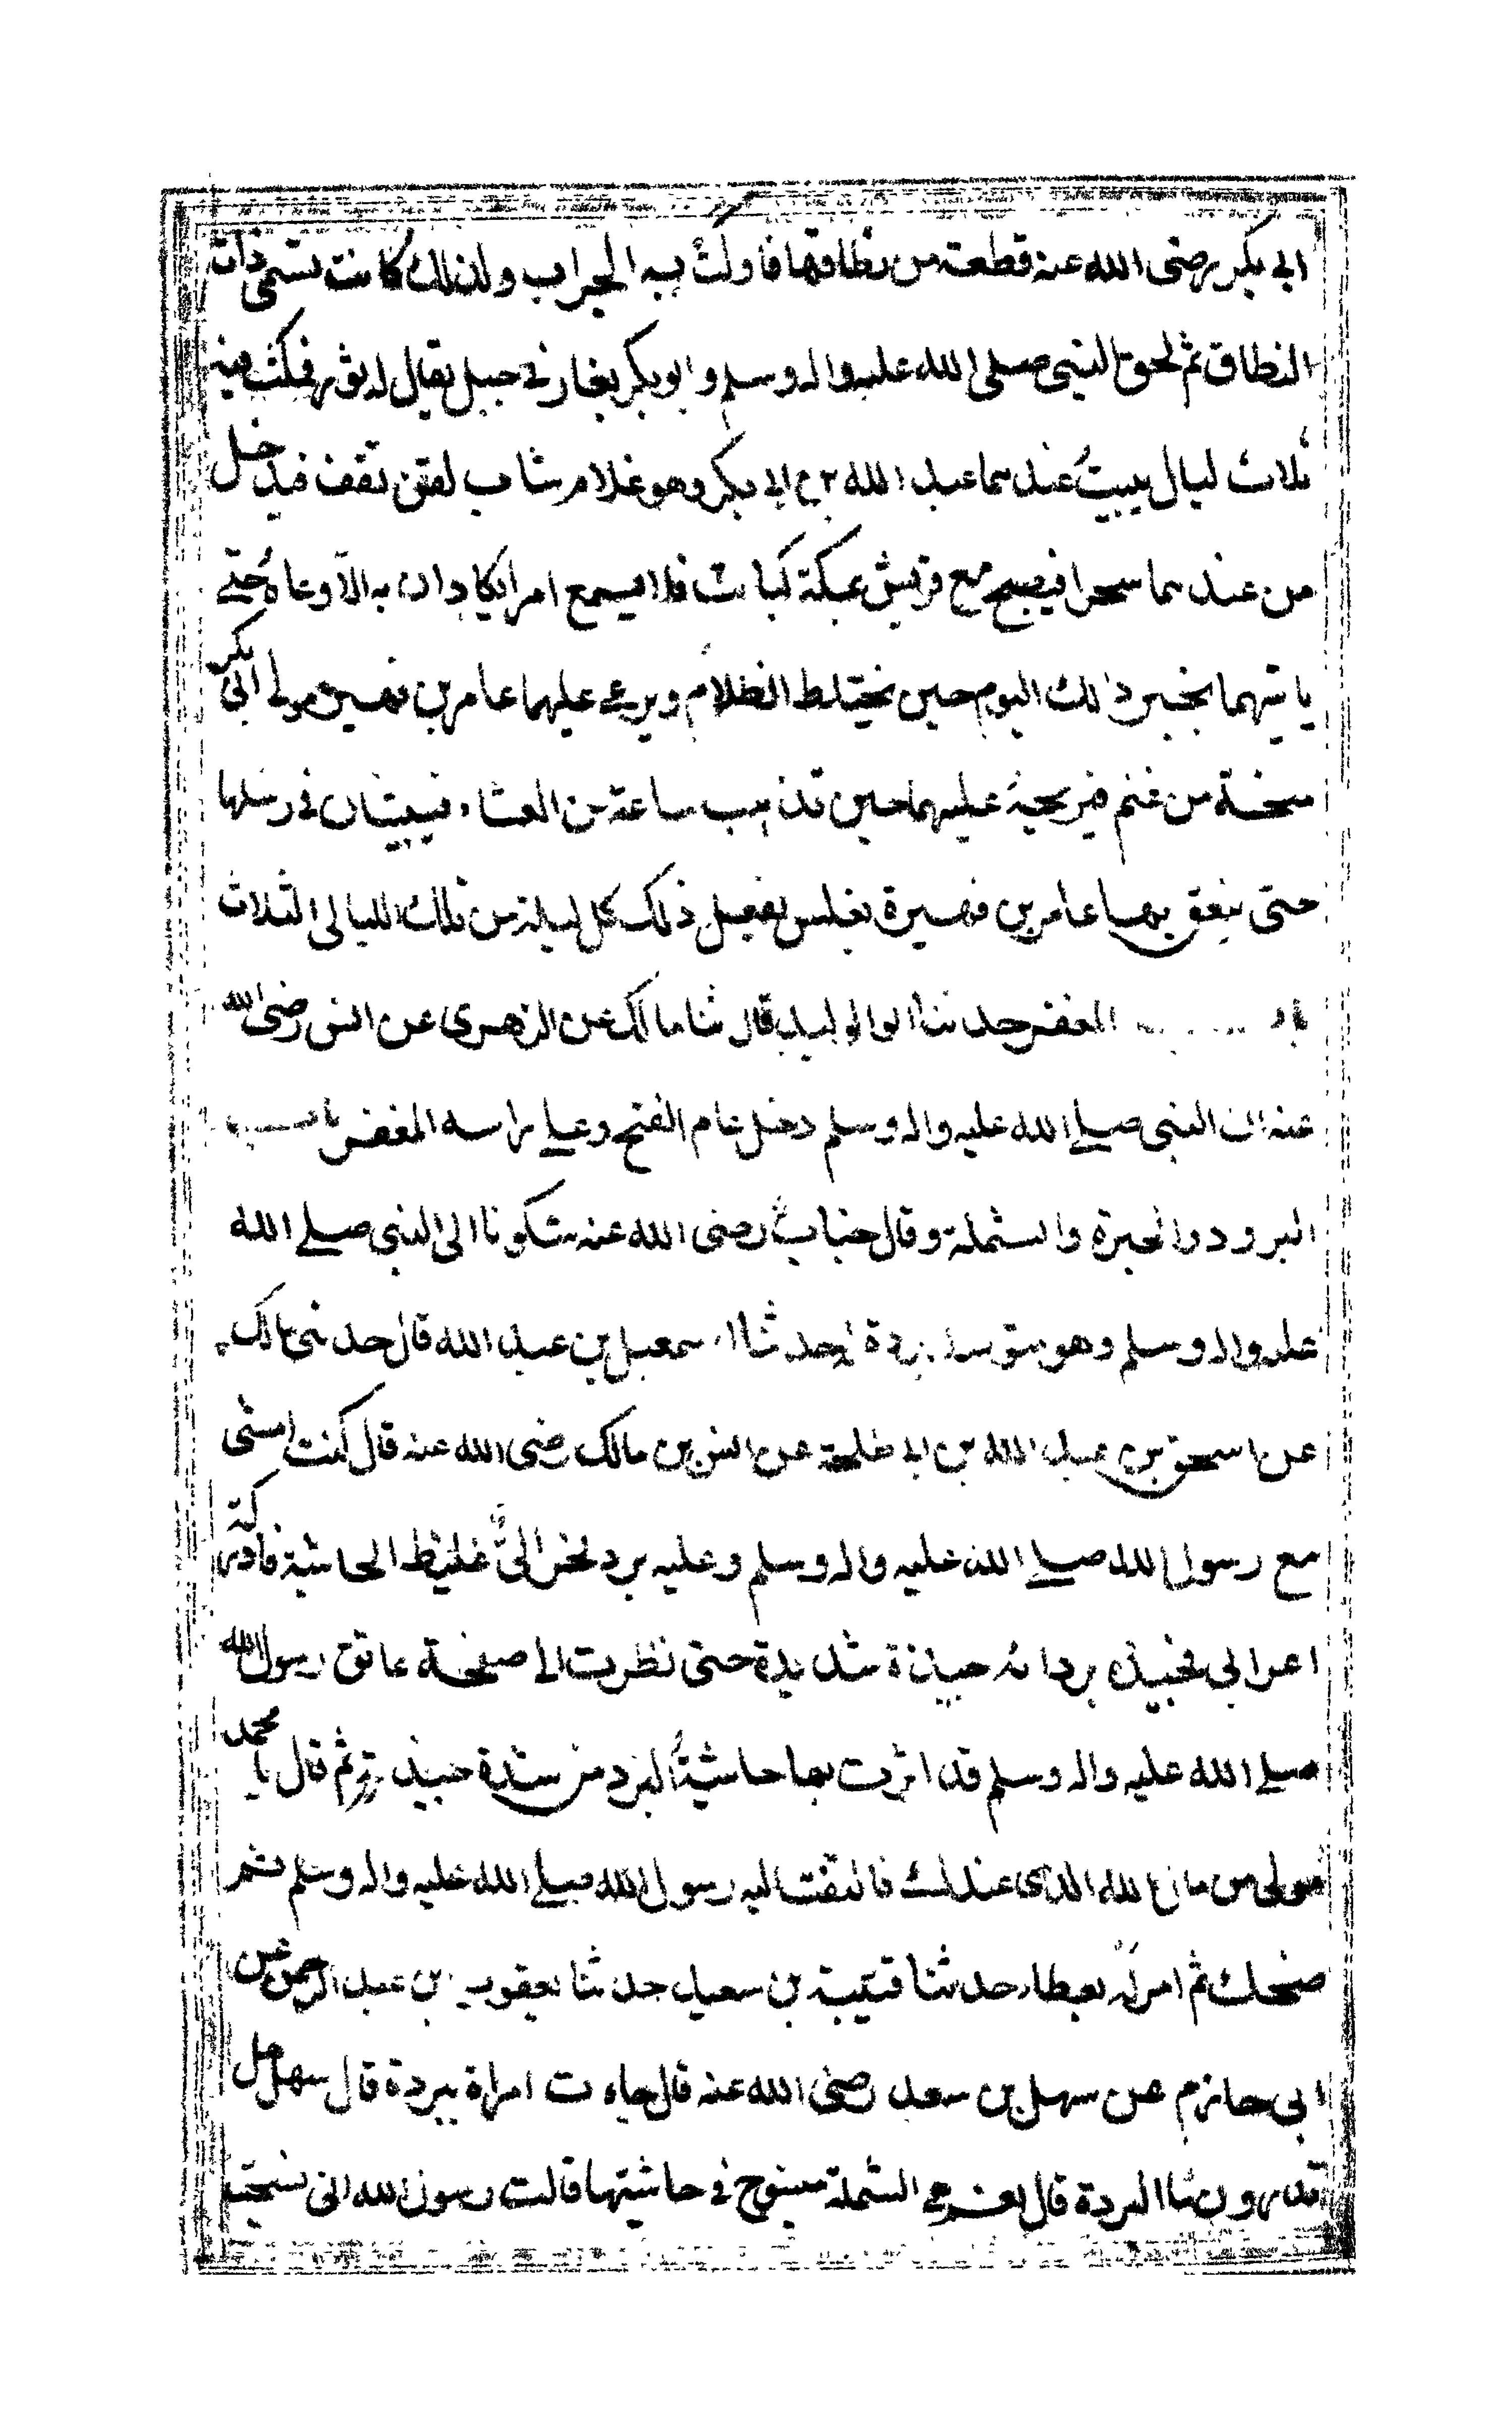 ابي بكر رضى الله عنه قطعة من نطاقها فاوكت به الجراب ولذلك كانت تسمى ذات
النطاق ثم لحق النبي صلى الله عليه واله وسلم وابو بكر بغار في جبل يقال له ثور فمكث فيه
ثلاث ليال يبيت عندهما عبد الله بن ابي بكر وهو غلام شاب لقن ثقف فيدخل
من عندهما سحرا فيصبح مع قريش بمكة كبائت فلا يسمع امرا يكادان به الا وعاه حتى
ياتيهما بخبر ذلك اليوم حين يختلط الظلام ويرعى عليهما عامر بن فهيرة مولى ابي بكر
منحة من غنم فيريحه عليهما حين تذهب ساعة من العشاء فيبيتان في رسلها
حتى ينعق بها عامر بن فهيرة بغلس يفعل ذلك كل ليلة من تلك الليالي الثلاث
باب المغفر حدثنا ابو الوليد قال ثنا مالك عن الزهرى عن انس رضى الله
عنه ان النبى صلى الله عليه واله وسلم دخل عام الفتح وعلى راسه المغفر باب
البرود والحبرة والشملة وقال خباب رضى الله عنه شكونا الى النبي صلى الله
عليه واله وسلم وهو متوسد بردة حدثنا اسمعيل بن عبد الله قال حدثنى مالك
عن اسحق بن عبد الله بن ابي طلحة عن انس بن مالك رضى الله عنه قال كنت امشى
مع رسول الله صلى الله عليه واله وسلم وعليه برد نجراني غليظ الحاشية فادركه
اعرابي فجبذه بردائه جبذة شديدة حتى نظرت الى صفحة عاتق رسول الله
صلى الله عليه واله وسلم قد اثرت بها حاشية البرد من شدة جبذته ثم قال يا محمد
مر لي من مال الله الذى عندك فالتفت اليه رسول الله صلى الله عليه واله وسلم ثم
ضحك ثم امر له بعطاء حدثنا قتيبة بن سعيد حدثنا يعقوب بن عبد الرحمن عن
ابى حازم عن سهل بن سعد رضى الله عنه قال جاءت امراة ببردة قال سهل هل
تدرون ما البردة قال نعم هي الشملة منسوج في حاشيتها قالت رسول الله انى نسجت